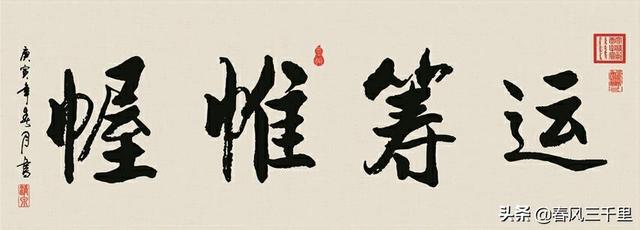 运筹帷幄
庚寅年春月書
头条 @春风三千里